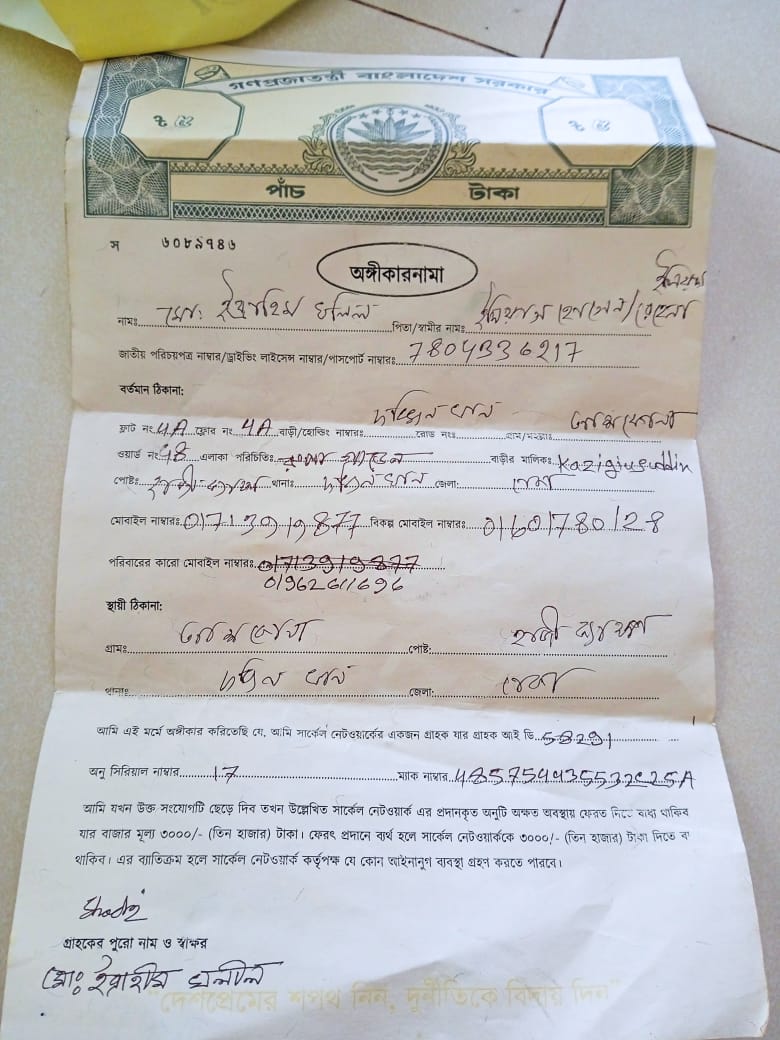 গণপ্রজাতন্ত্রী বাংলাদেশ সরকার
৳ ৫ ৳ ৫
পাঁচ টাকা
স ৬০৮৯৭৪৬
অঙ্গীকারনামা
নামঃ মো: ইব্রাহিম খলিল পিতা/স্বামীর নামঃ
জাতীয় পরিচয়পত্র নাম্বার/ড্রাইভিং লাইসেন্স নাম্বার/পাসপোর্ট নাম্বারঃ 7804336217
বর্তমান ঠিকানা:
ফ্লাট নংঃ 4A ফ্লোর নংঃ 4A বাড়ী/হোল্ডিং নাম্বারঃ দক্ষিন খান রোড নংঃ গ্রাম/মহল্লাঃ
ওয়ার্ড নংঃ 48 এলাকা পরিচিতিঃ বাড়ীর মালিকঃ Kazigiusuddin
পোষ্টঃ থানাঃ দক্ষিন খান জেলা: ঢাকা
মোবাইল নাম্বারঃ 01713919877 বিকল্প মোবাইল নাম্বারঃ 01601780128
পরিবারের কারো মোবাইল নাম্বারঃ 01713919877
01962611696
স্থায়ী ঠিকানা:
গ্রামঃ পোষ্ট:
থানাঃ দক্ষিন খান জেলা: ঢাকা
আমি এই মর্মে অঙ্গীকার করিতেছি যে, আমি সার্কেল নেটওয়ার্কের একজন গ্রাহক যার গ্রাহক আই ডি 58291
অনু সিরিয়াল নাম্বার 17 ম্যাক নাম্বার 485754435532C25A
আমি যখন উক্ত সংযোগটি ছেড়ে দিব তখন উল্লেখিত সার্কেল নেটওয়ার্ক এর প্রদানকৃত অনুটি অক্ষত অবস্থায় ফেরত দিতে বাধ্য থাকিব
যার বাজার মূল্য ৩০০০/- (তিন হাজার) টাকা। ফেরৎ প্রদানে ব্যর্থ হলে সার্কেল নেটওয়ার্ককে ৩০০০/- (তিন হাজার) টাকা দিতে ব
থাকিব। এর ব্যতিক্রম হলে সার্কেল নেটওয়ার্ক কর্তৃপক্ষ যে কোন আইনানুগ ব্যবস্থা গ্রহণ করতে পারবে।
গ্রাহকের পুরো নাম ও স্বাক্ষর
মো: ইব্রাহীম খলীল
"দেশপ্রেমের শপথ নিন, দুর্নীতিকে বিদায় দিন"